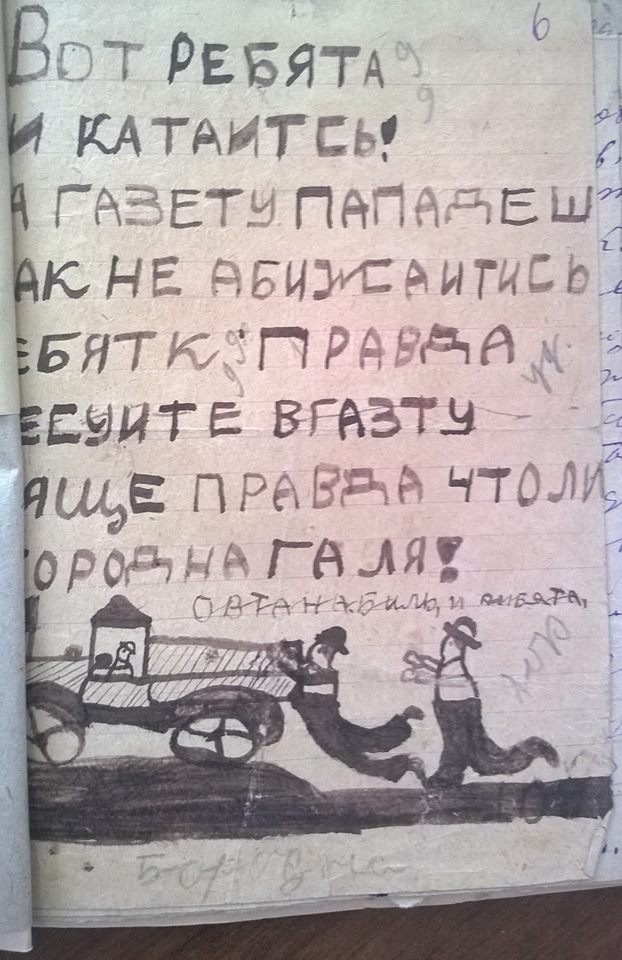 6
ВОТ РЕБЯТА
И КАТАИТСЬ!
А ГАЗЕТУ ПАПАДЕШ
АК НЕ АБИЖАИТИСЬ
ЕБЯТК ПРАВДА
ЕСУИТЕ ВГАЗТУ
ЯЩЕ ПРАВДА ЧТОЛИ
ОРОДНА ГАЛЯ!
ОВТАНАБИЛЬ, И РИБЯТА,